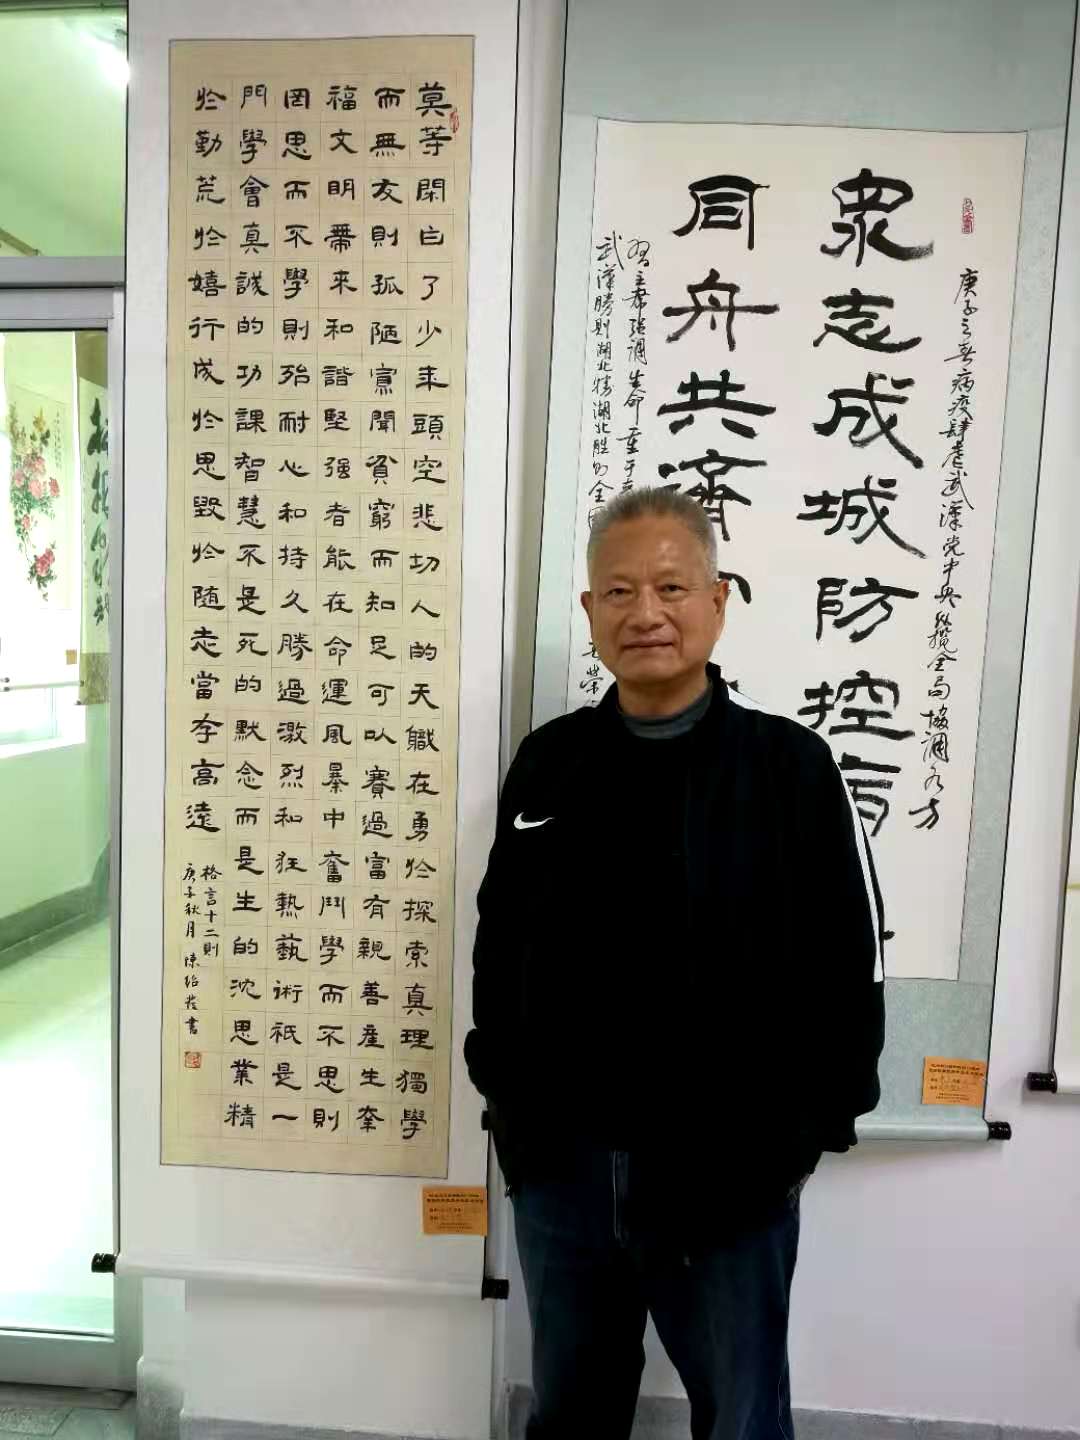 莫等閑白了少年頭空悲切人的天職在勇於探索真理獨學
而無友則孤陋寡聞貧窮而知足可以賽過富有親善産生幸
福文明帶來和諧堅强者能在命運風暴中奮鬥學而不思則
罔思而不學則殆耐心和持久勝過激烈和狂熱藝術祇是一
門學會真誠的功課智慧不是死的默念而是生的沈思業精
於勤荒於嬉行成於思毀於随志當存高遠
格言十二則
庚子秋月陳紹書
庚子之春病疫肆虐武漢党中央纵揽全局協調各方
衆志成城防控
同舟共濟
習主席强調生命重于
武漢勝則湖北勝湖北胜则全国